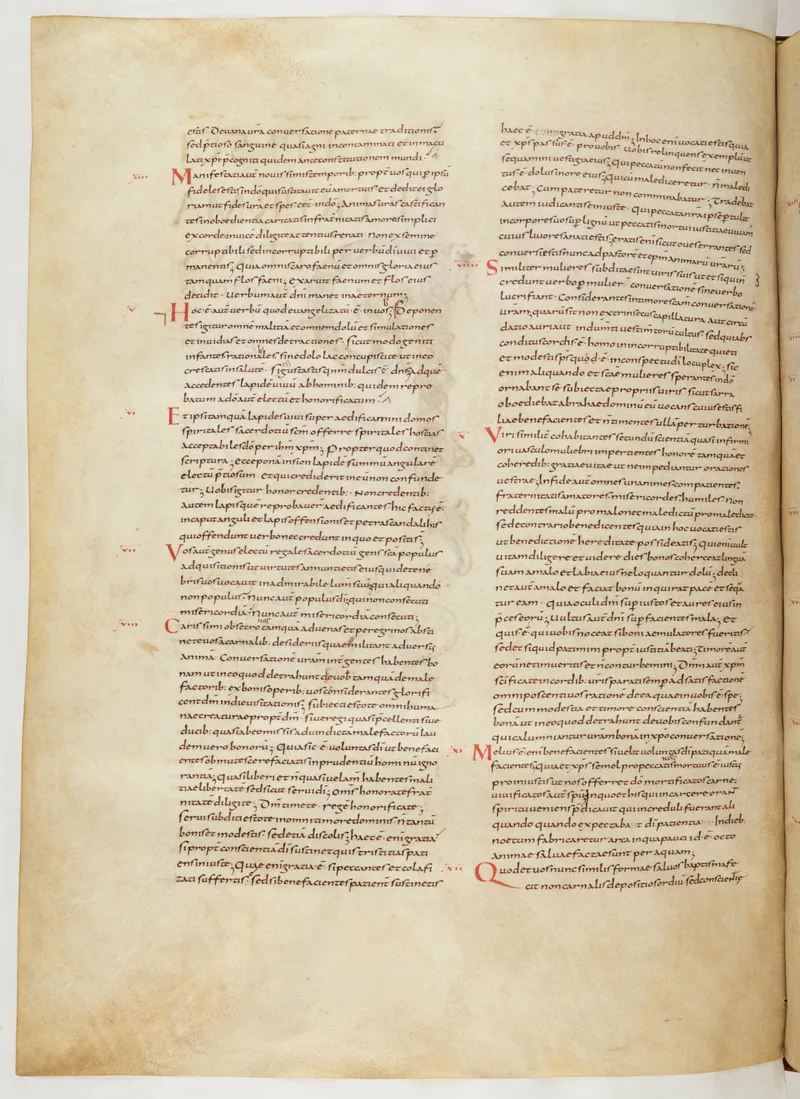 estis Deuana ura conuersatione paternae traditionis;
sed ptioso sanguine quasi agni incontaminati et inmacu
lati xpi pcogniti quidem ante constitutionem mundi
IIII. Manifestati aut nouissimis temporib; propt uos qui p ipsū
fideles estis in dō qui suscitauit eū a mortuis et dedit ei glo
riam ut fides ura et spes cet in dō; Animas uras castifican
tes in oboedientia caritatis in fratnitatis amore simplici
ex corde inuicē diligite attentius renati non ex semine
corruptibili sed incorruptibili per uerbū dī uiui et p
manentis; quia omnis caro faenū et omnis gloria eius
tamquam flos faeni; exaruit faenum et flos eius
decidit · Uerbum aut dni manet in aeternum;
V. Hoc ē aut uerbū quod euangelizatū ē in uos; Deponen
tes igitur omnē malitiā et omnem dolū et simulationes
et inuidias et omnes detractiones · sicut modo geniti
infantes rationabiles sine dolo lac concupiscite ut in eo
crescatis in salutē · si gustastis qnm dulcis ē dns ad quē
accedentes lapidē uiuū ab hominib; quidem repro
batum a dō aut electū et honorificatum
VI. Et ipsi tamquā lapides uiui superaedificamini domos
spiritales sacerdotiū scm offerre spiritales hostias
Acceptabiles dō per ihm xpm; Propter quod continet
scriptura; ecce pono in sion lapidē summū angularē
electū ptiosum et qui crediderit in eū non confunde
tur; Uobis igitur honor credentib; · Non credentib;
autem lapis quē reprobauer aedificantes hic factus ē
in caput anguli et lapis offensionis et petra scandali his
qui offendunt uerbo nec credunt in quo et positi s;
VII. Uos aut genus electū regale sacerdotiū gens sca populus
adquisitionis ut uirtutes annuntietis eius qui de tene
bris uos uocauit in admirabile lum suū; qui aliquando
non populus nunc aut populus dī; qui non consecuti
misericordiā nunc aut misericordiā consecuti;
VIII. Carissimi obsecro uos tamquā aduenas et peregrinos absti
nete uos a carnalib; desideriis quae militant aduersus
animā · Conuersationē uram int gentes habentes bo
nam ut in eo quod detrahunt de uob tamquā de male
factorib; ex bonis operib; uos considerantes glorifi
cent dm in die uisitationis; subiecti estote omni huma
nae creaturae propt dm · siue regi quasi pcellenti siue
ducib; quasi ab eo missis ad uindictā malefactorū lau
dem uero bonorū; Quia sic ē uoluntas dī ut benefaci
entes obmutescere faciatis inprudentiū hominū igno
rantiā; quasi liberi et n quasi uelam habentes mali
tiae libertatē sed sicut serui dī; Omīs honorate frat
nitatē diligite; Dm timete · regē honorificate;
serui subditi estote in omni timore dominis n tantū
bonis et modestis · sed etiā discolis; haec ē enī gratia
si propt conscientiā dī sustinet quis tristitias pati
ens iniuste; Quae enī gratia ē · si peccantes et colafi
zati suffertis · sed si bene facientes patient sustinetis
haec ē gratia apud dm; In hoc enī uocati estis quia
et xps passus ē pro uobis uobis relinquens exemplū ut
sequamini uestigia eius; qui peccatū non fecit nec inuen
tus ē dolus in ore eius; qui cū malediceretur · n maledi
cebat; Cum pateretur non comminabatur; Tradebat
autem iudicanti se iniuste · qui peccata nra ipse ptulit
in corpore suo sup lignū ut peccatis mortui iustitiae uiuam
cuius liuore sanati estis; eratis enī sicut oues errantes sed
conuersi estis nunc ad pastorē et epm animarū urarū;
VIIII. Similiter mulieres subditae sint uiris suis ut et si qui n
credunt uerbo p mulierū conuersationē sine uerbo
lucrifiant · Considerantes in timore scam conuersationē
uram; quarū sit non extrinsecus capillatura aut circū
datio auri aut indumti uestimtorū cultus sed qui abs
conditus cordis ē homo in incorruptibilitate quieti
et modesti sps quod ē in conspectu dī locuples; sic
enim aliquando et scae mulieres sperantes in dō
ornabant se subiectae propriis uiris sicut sarra
oboediebat abrahae dominū eū uocans cuius estis fi
liae benefacientes et n timentes ullā perturbationē;
X. Viri similit cohabitantes secundū scientiā quasi infirmi
ori uasculo muliebri impertientes honorē tamquā et
coheredib; gratiae uitae ut ne inpediantur orationes
uestrae; In fide aut omnes unanimes compatientes;
fraternitatis amatores misericordes humiles non
reddentes malū pro malo nec maledictū pro maledicto ·
sed e contrario benedicentes quia in hoc uocati estis
ut benedictionē hereditate possideatis; qui enim uult
uitam diligere et uidere dies bonos coherceat linguā
suam a malo et labia eius ne loquantur dolū; decli
net aut a malo et faciat bonū inquirat pacē et sequa
tur eam · quia oculi dni sup iustos et aures eius in
pces eorū; Uultus aut dni sup facientes mala; et
quis ē qui uobis noceat si boni aemulatores fueritis
sed et si quid patimini propt iustitiā beati; timorē aut
eorū ne timueritis et n conturbemini; Dnm aut xpm
scificate in cordib; uris parati semp ad satisfactionē
omni poscenti uos rationē de ea quae in uobis ē spe;
sed cum modestia et timore conscientiā habentes
bonā ut in eo quod detrahunt de uobis confundant
qui calumniantur uram bonā in xpo conuersationē;
XI. Melius ē enī benefacientes si uelit uoluntas dī pati quā male
facientes; quia et xps semel pro peccatis nris mortuus ē iustus
pro iniustis ut nos offerret dō mortificatos carne;
uiuificatos aut spu in quo et his qui in carcere erant
spiritu ueniens pdicauit qui increduli fuerant ali
quando quando expectabat dī patientia · In dieb;
noe cum fabricaretur arca in qua pauci id ē octo
animae saluae factae sunt per aquam;
XII. Quod et uos nunc similis formae saluos baptisma fe
cit non carnalis depositio sordiū sed conscientie